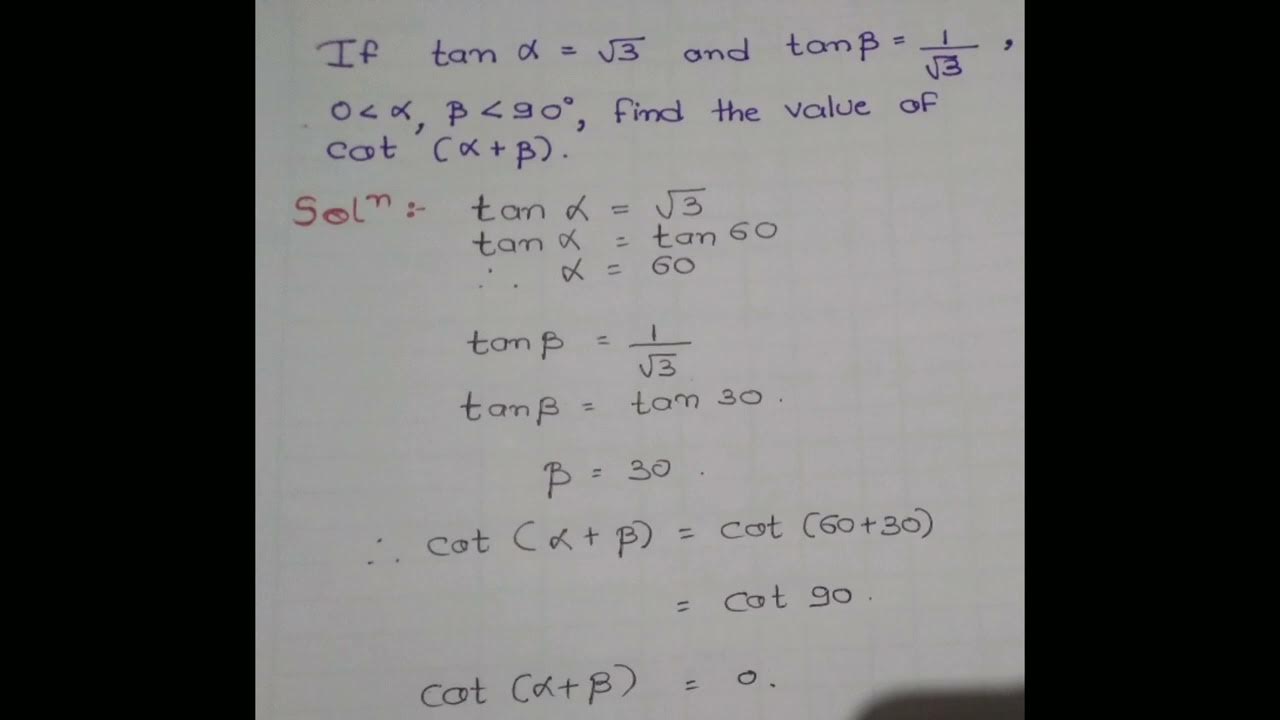 If tan α = √3 and tan β = 1/√3 ,
0 < α, β < 90°, find the value of
cot (α + β).
Solⁿ :- tan α = √3
tan α = tan 60
∴ α = 60
tan β = 1/√3
tan β = tan 30.
β = 30.
∴ cot (α + β) = cot (60+30)
= cot 90.
cot (α+β) = 0.